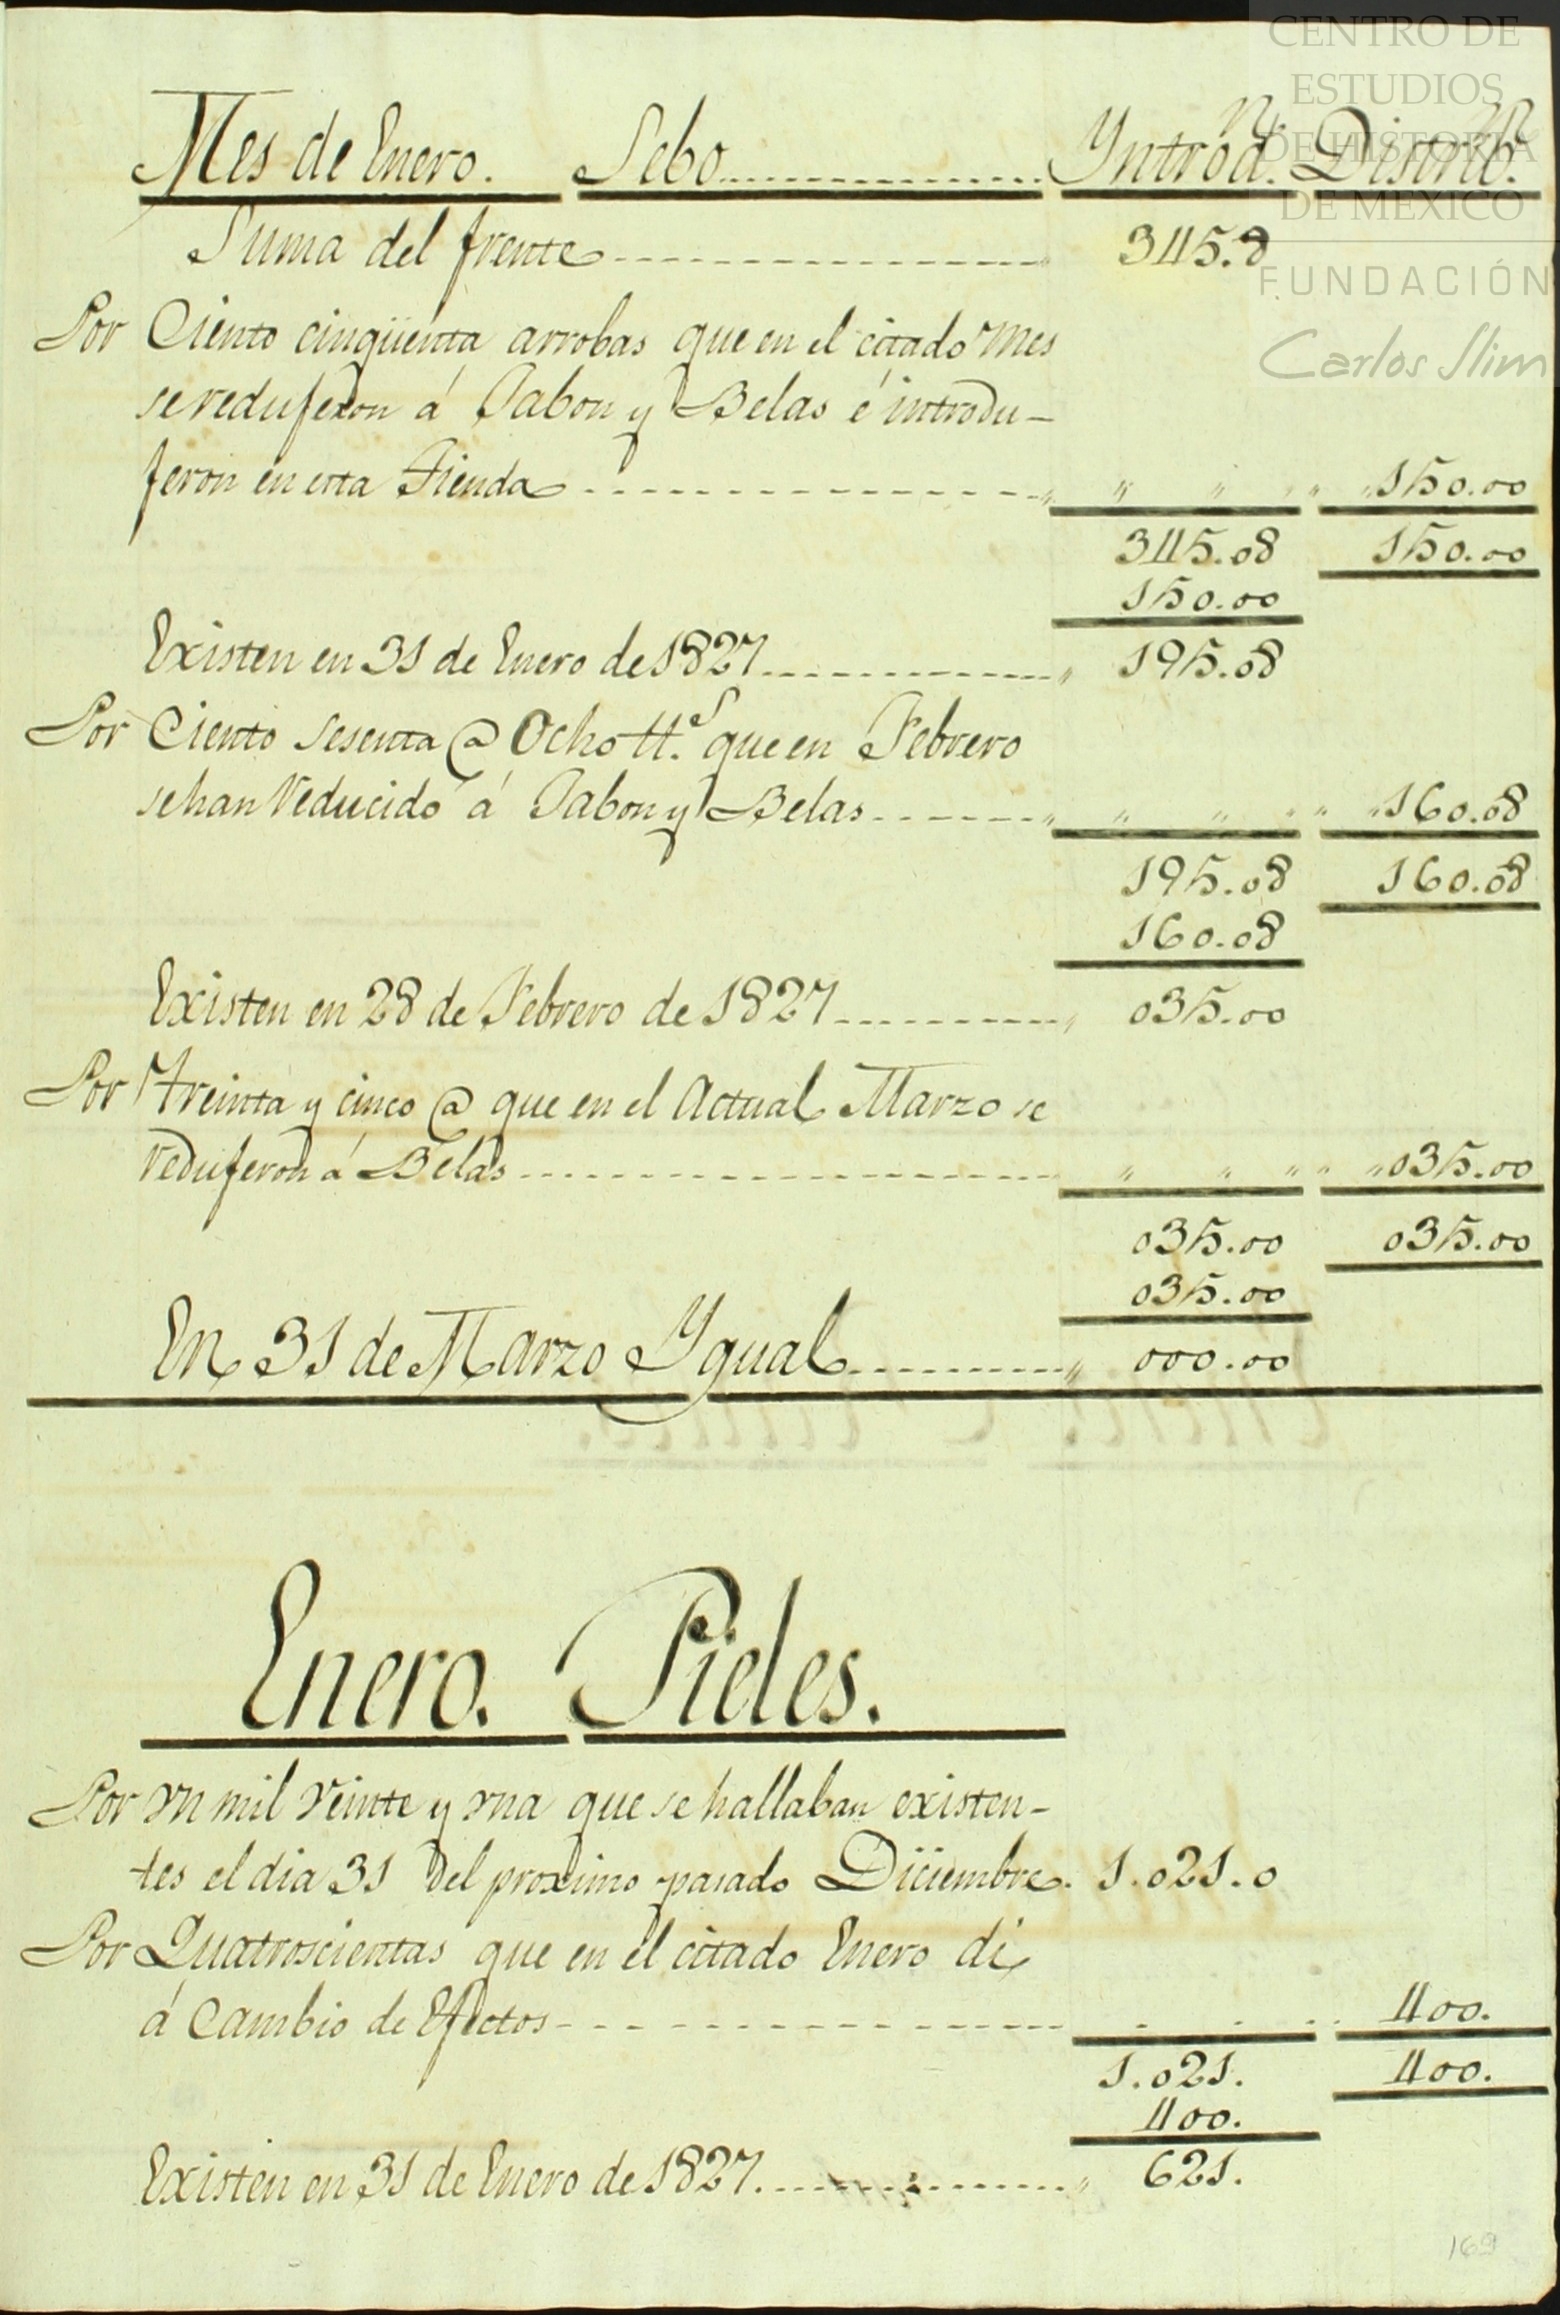 CENTRO DE
ESTUDIOS
DE HISTORIA
DE MEXICO
FUNDACIÓN
Carlos Slim
Mes de Enero. Sebo Yntrod.n Distrib.n
Suma del frente 345.8
Por Ciento cinqüenta arrobas que en el citado Mes
se redujeron á Jabon y Belas é introdu-
jeron en esta Tienda " " " " " 150.00
345.08 150.00
150.00
Existen en 31 de Enero de 1827 " 195.08
Por Ciento sesenta @ Ocho tt.s que en Febrero
se han reducido á Jabon y Belas " " " " " 160.08
195.08 160.08
160.08
Existen en 28 de Febrero de 1827 " 035.00
Por treinta y cinco @ que en el Actual Marzo se
redujeron á Belas " " " " " 035.00
035.00 035.00
035.00
En 31 de Marzo Ygual " 000.00
Enero. Pieles.
Por vn mil veinte y vna que se hallaban existen-
tes el dia 31 del proximo pasado Diciembre. 1.021.0
Por Quatroscientas que en el citado Enero di
á Cambio de Efectos 400.
1.021. 400.
400.
Existen en 31 de Enero de 1827. " 621.
169